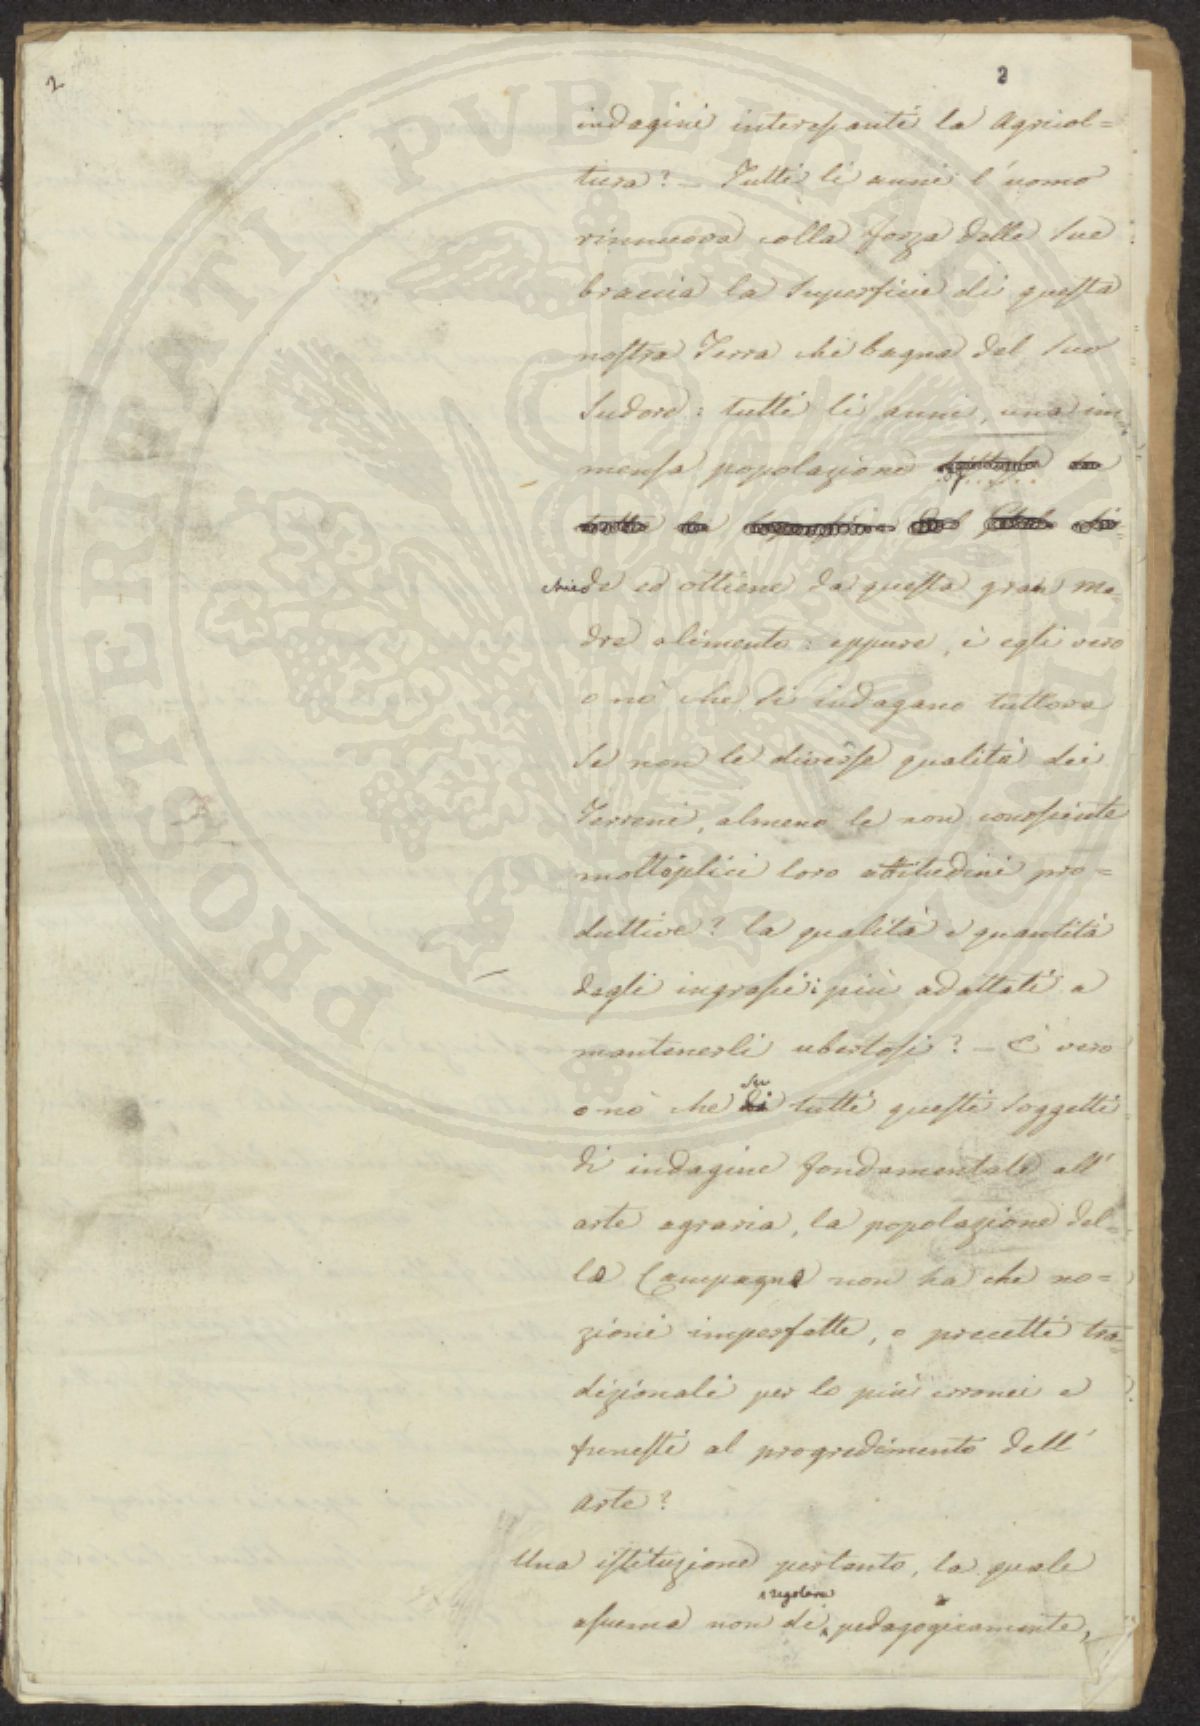 2
2
indagini interessanti la Agricol=
tura? - Tutti li anni l'uomo
rinnuova colla forza delle sue
braccia la superficie di questa
nostra Terra che bagna del suo
sudore: tutti li anni, una im
mensa popolazione
chiede ed ottiene da questa gran ma=
dre alimento: eppure, è egli vero
o nò che si indagano tuttora
se non le diverse qualità dei
Terreni, almeno le non conosciute
moltiplici loro attitudini pro=
duttive? la qualità e quantità
degli ingrassi più adattati a
mantenerli ubertosi? - È vero
o nò che su tutti questi soggetti
di indagine fondamentale all'
arte agraria, la popolazione del=
la Campagna non ha che no=
zioni imperfette, o precetti tra=
dizionali per lo più erronei e
funesti al progredimento dell'
Arte?
Una istituzione pertanto, la quale
assuma non di regolare pedagogicamente,
PROSPERITATI PUBLICAE AUGENDAE